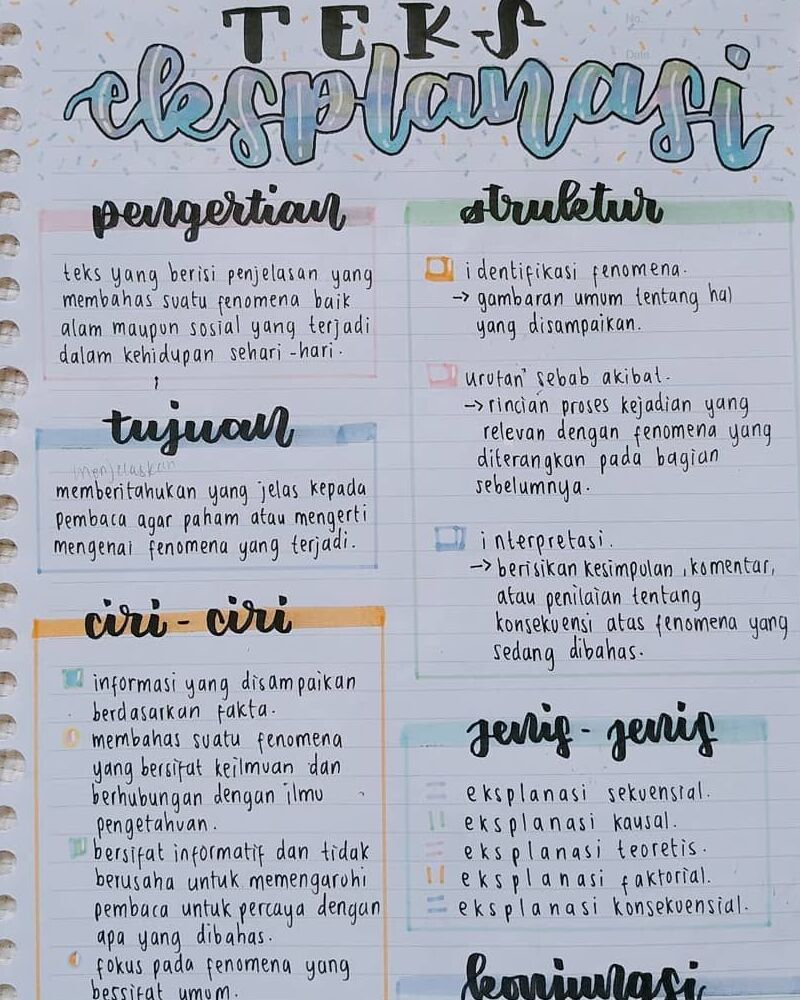 TEKS
eksplanasi
No.
Date
pengertian
teks yang berisi penjelasan yang
membahas suatu fenomena baik
alam maupun sosial yang terjadi
dalam kehidupan sehari-hari.
tujuan
menjelaskan
memberitahukan yang jelas kepada
pembaca agar paham atau mengerti
mengenai fenomena yang terjadi.
ciri-ciri
informasi yang disampaikan
berdasarkan fakta.
membahas suatu fenomena
yang bersifat keilmuan dan
berhubungan dengan ilmu
pengetahuan.
bersifat informatif dan tidak
berusaha untuk memengaruhi
pembaca untuk percaya dengan
apa yang dibahas.
fokus pada fenomena yang
bersifat umum.
struktur
identifikasi fenomena.
→ gambaran umum tentang hal
yang disampaikan.
urutan sebab akibat.
→ rincian proses kejadian yang
relevan dengan fenomena yang
diterangkan pada bagian
sebelumnya.
interpretasi.
→ berisikan kesimpulan, komentar,
atau penilaian tentang
konsekuensi atas fenomena yang
sedang dibahas.
jenis-jenis
eksplanasi sekuensial.
eksplanasi kausal.
eksplanasi teoretis.
eksplanasi faktorial.
eksplanasi konsekuensial.
konjungsi